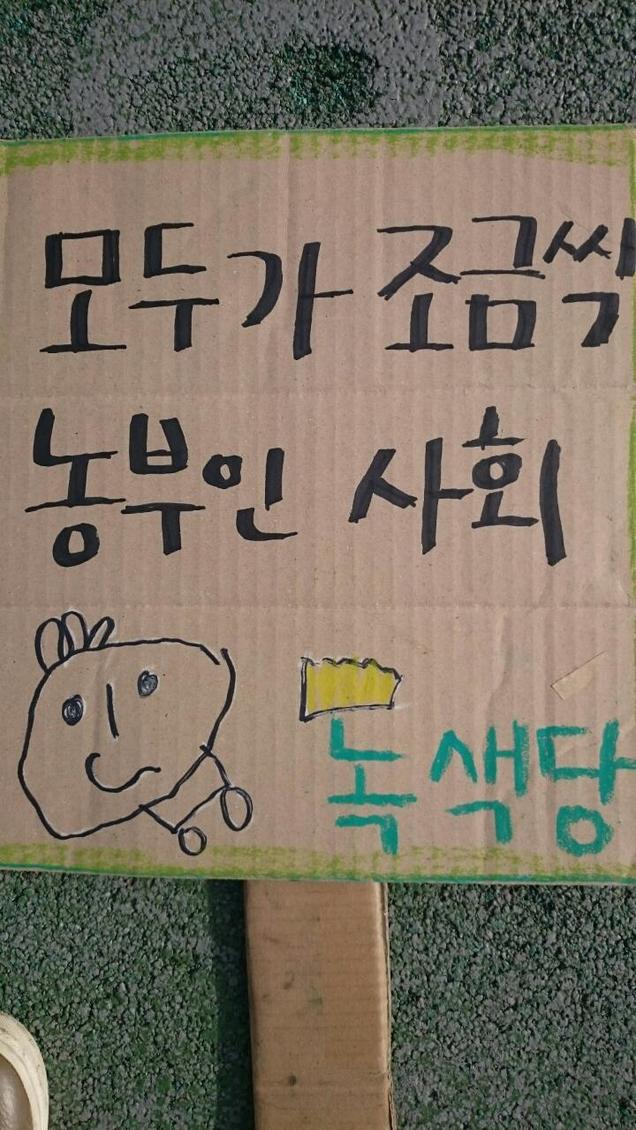 모두가 조금씩
농부인 사회
녹색당